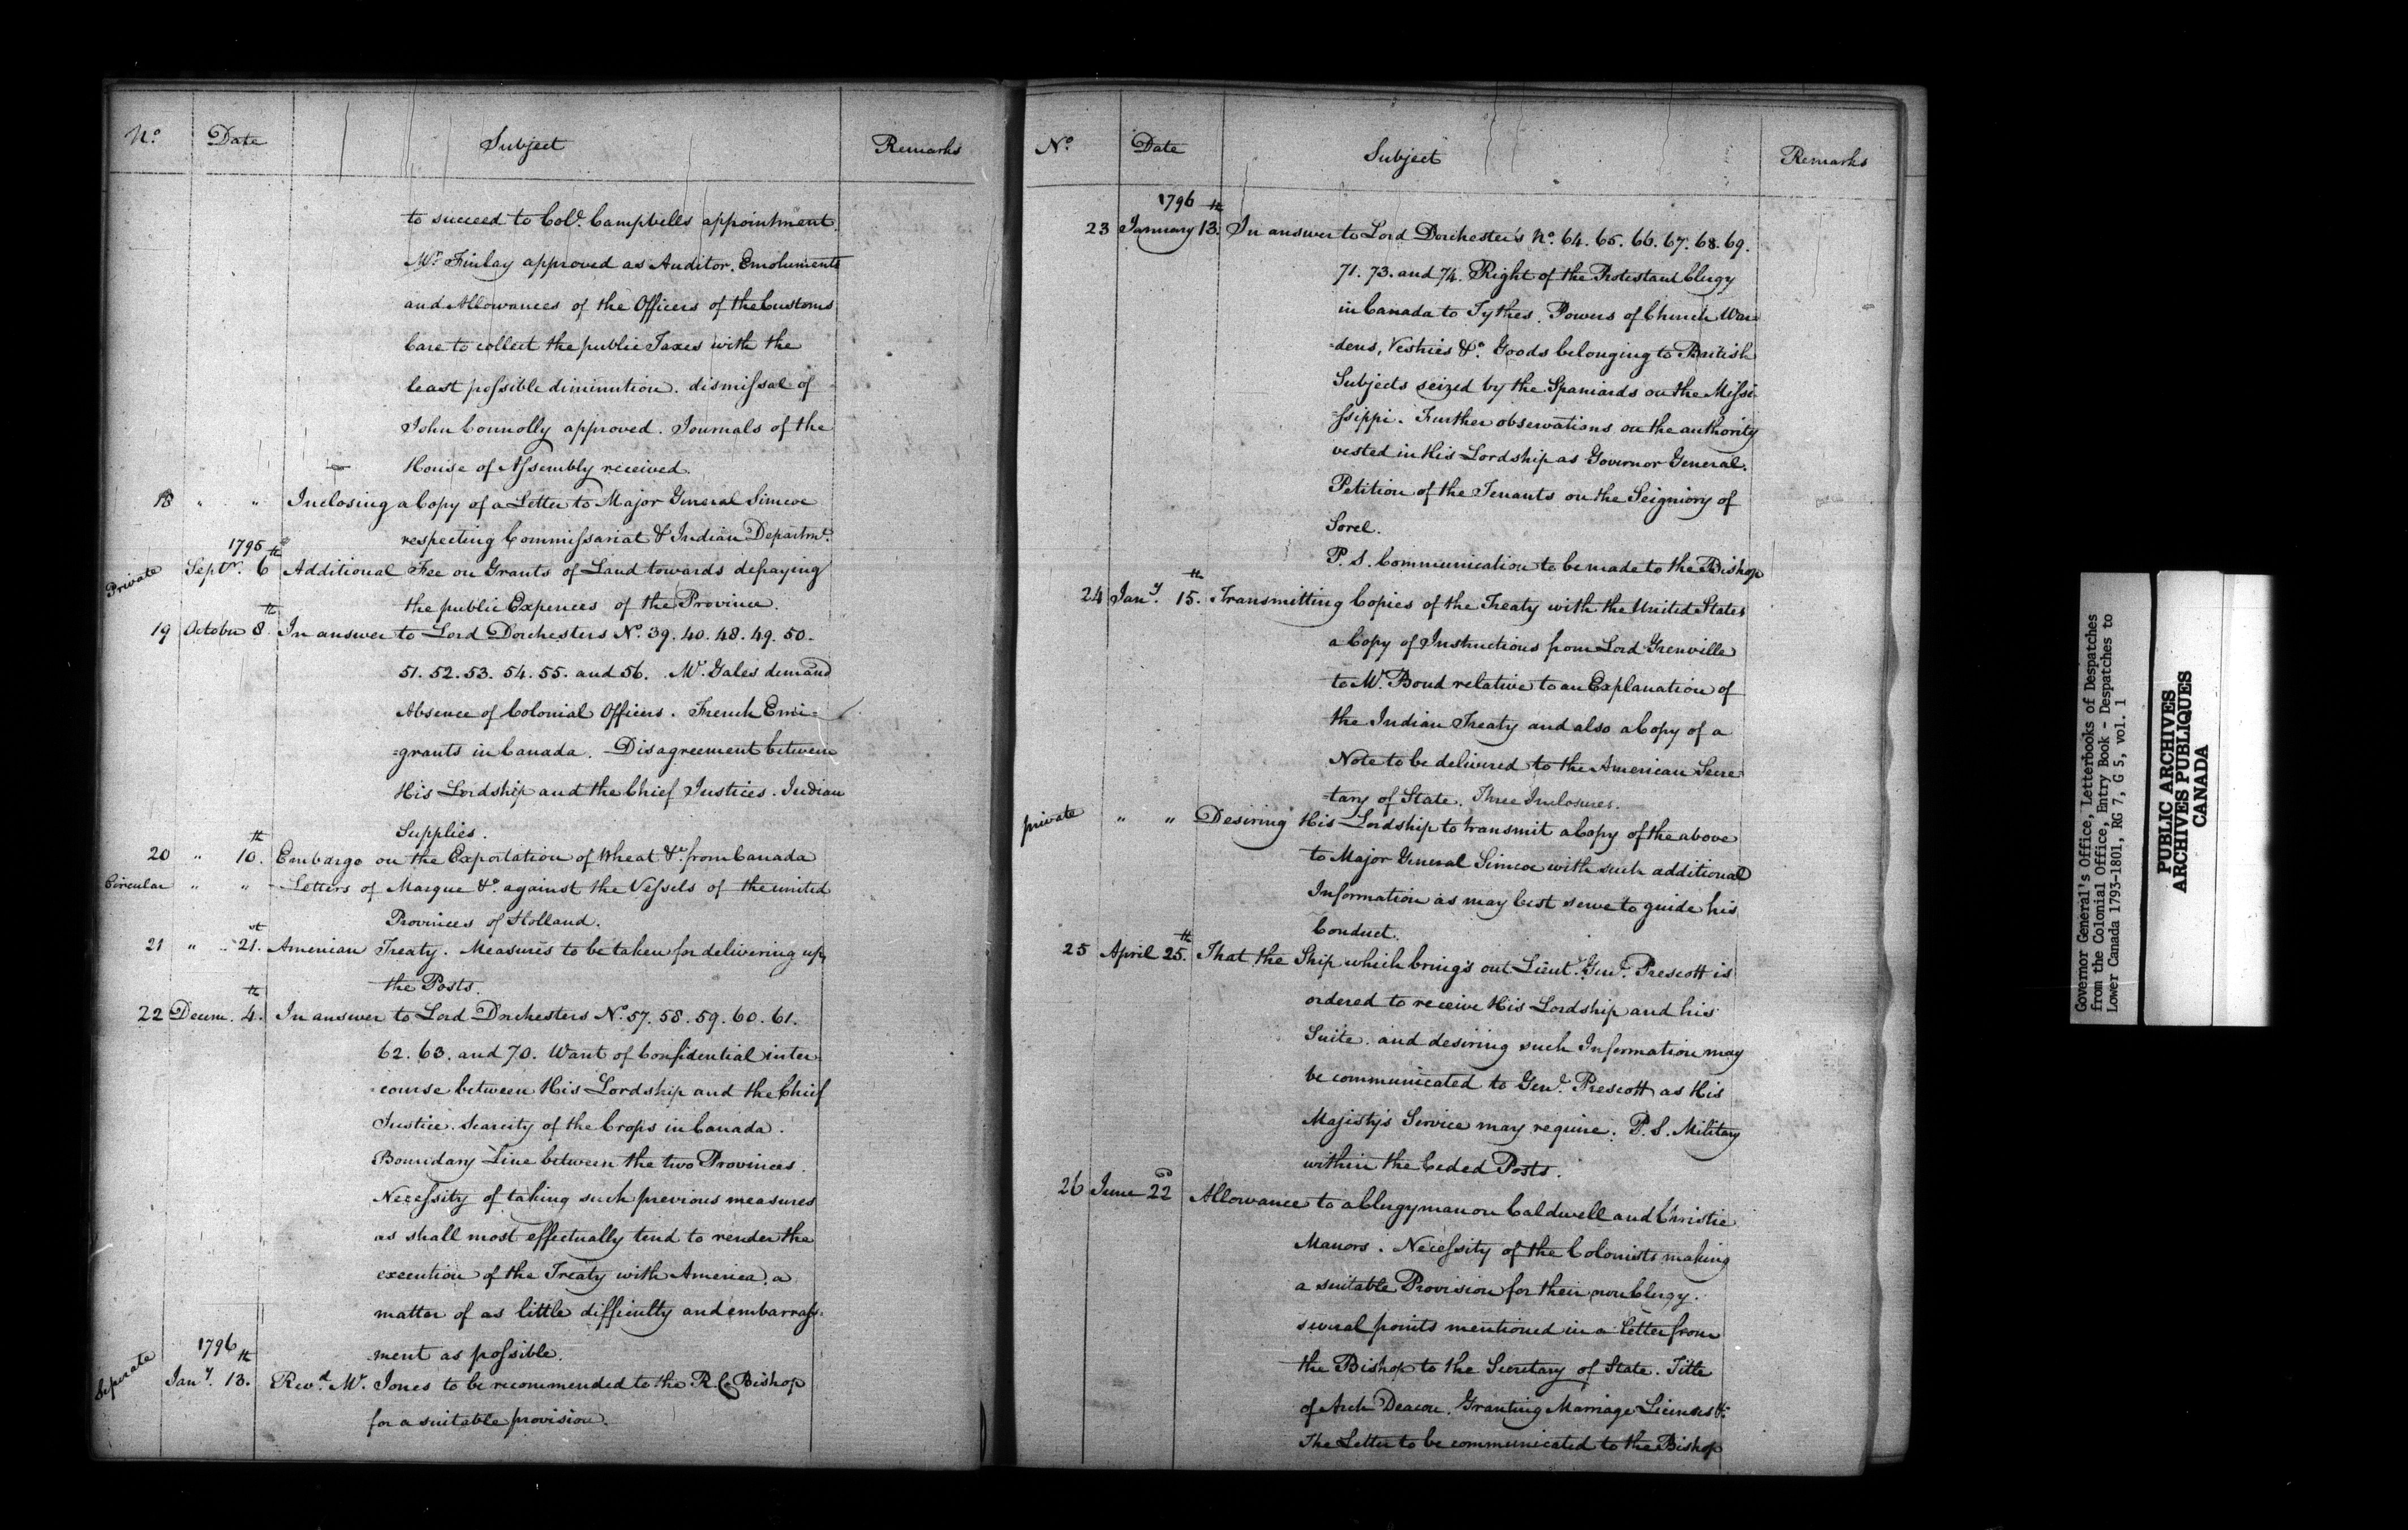 No. Date Subject Remarks
to succeed to Colo. Campbells appointment.
Mr. Finlay approved as Auditor. Emoluments
and Allowances of the Officers of the Customs
Care to collect the public Taxes with the
least possible diminution. dismissal of
John Connolly approved. Journals of the
House of Assembly received.
18 " " Inclosing a Copy of a Letter to Major General Simcoe
respecting Commissariat & Indian Departmt.
1795
Private Septr. 6th Additional Fee on Grants of Land towards defraying
the public Expences of the Province.
19 October 8th. In answer to Lord Dorchesters No. 39. 40. 48. 49. 50.
51. 52. 53. 54. 55. and 56. Mr. Gales demand
Absence of Colonial Officers. French Emi=
=grants in Canada. Disagreement between
His Lordship and the Chief Justices. Indian
Supplies.
20 " 10th. Embargo on the Exportation of Wheat &c. from Canada
Circular " " Letters of Marque &c. against the Vessels of the united
Provinces of Holland.
21 " " 21st. American Treaty. Measures to be taken for delivering up
the Posts.
22 Decem. 4th. In answer to Lord Dorchesters No. 57. 58. 59. 60. 61.
62. 63. and 70. Want of Confidential inter-
-course between His Lordship and the Chief
Justice. Scarcity of the Crops in Canada.
Boundary Line between the two Provinces.
Necessity of taking such previous measures
as shall most effectually tend to render the
execution of the Treaty with America, a
matter of as little difficulty and embarrass-
ment as possible.
1796
Seperate Jany. 13th. Revd. Mr. Jones to be recommended to the R. C. Bishop
for a suitable provision.
No. Date Subject Remarks
1796
23 January 13th. In answer to Lord Dorchester's No. 64. 65. 66. 67. 68. 69.
71. 73. and 74. Right of the Protestant Clergy
in Canada to Tythes. Powers of Church War=
=dens, Vestries &c. Goods belonging to British
Subjects seized by the Spaniards on the Missi-
=ssippi. Further observations on the authority
vested in His Lordship as Governor General.
Petition of the Tenants on the Seigniory of
Sorel.
P.S. Communication to be made to the Bishop
24 Jany. 15th. Transmitting Copies of the Treaty with the United States
a Copy of Instructions from Lord Grenville
to Mr. Bond relative to an Explanation of
the Indian Treaty and also a Copy of a
Note to be delivered to the American Secre-
=tary of State. Three Inclosures.
private " " Desiring His Lordship to transmit a Copy of the above
to Major General Simcoe with such additional
Information as may best serve to guide his
Conduct.
25 April 25th. That the Ship which bring's out Lieut. Genl. Prescott is
ordered to receive His Lordship and his
Suite. and desiring such Information may
be communicated to Genl. Prescott as His
Majesty's Service may require. P.S. Military
within the Ceded Posts.
26 June 22d Allowance to a Clergyman on Caldwell and Christie
Manors. Necessity of the Colonists making
a suitable Provision for their own Clergy.
several points mentioned in a Letter from
the Bishop to the Secretary of State. Title
of Arch Deacon. Granting Marriage Licenses &c.
The Letter to be communicated to the Bishop
Governor General's Office, Letterbooks of Despatches
from the Colonial Office, Entry Book - Despatches to
Lower Canada 1793-1801, RG 7, G 5, vol. 1
PUBLIC ARCHIVES
ARCHIVES PUBLIQUES
CANADA